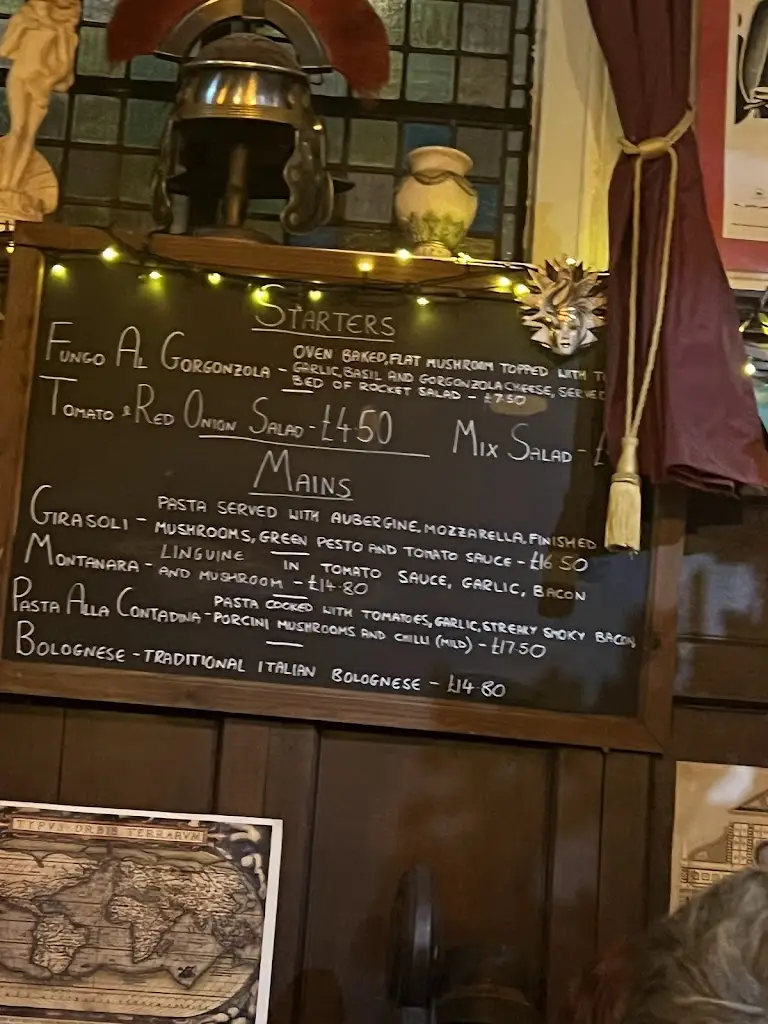 STARTERS
OVEN BAKED, FLAT MUSHROOM TOPPED WITH
FUNGO AL GORGONZOLA - GARLIC, BASIL AND GORGONZOLA CHEESE, SERVED
BED OF ROCKET SALAD - £7.50
TOMATO & RED ONION SALAD - £4.50 MIX SALAD -
MAINS
PASTA SERVED WITH AUBERGINE, MOZZARELLA, FINISHED
GIRASOLI - MUSHROOMS, GREEN PESTO AND TOMATO SAUCE - £16.50
LINGUINE IN TOMATO SAUCE, GARLIC, BACON
MONTANARA - AND MUSHROOM - £14.80
PASTA COOKED WITH TOMATOES, GARLIC, STREAKY SMOKY BACON,
PASTA ALLA CONTADINA - PORCINI MUSHROOMS AND CHILLI (MILD) - £17.50
BOLOGNESE - TRADITIONAL ITALIAN BOLOGNESE - £14.80
TYPVS ORBIS TERRARVM